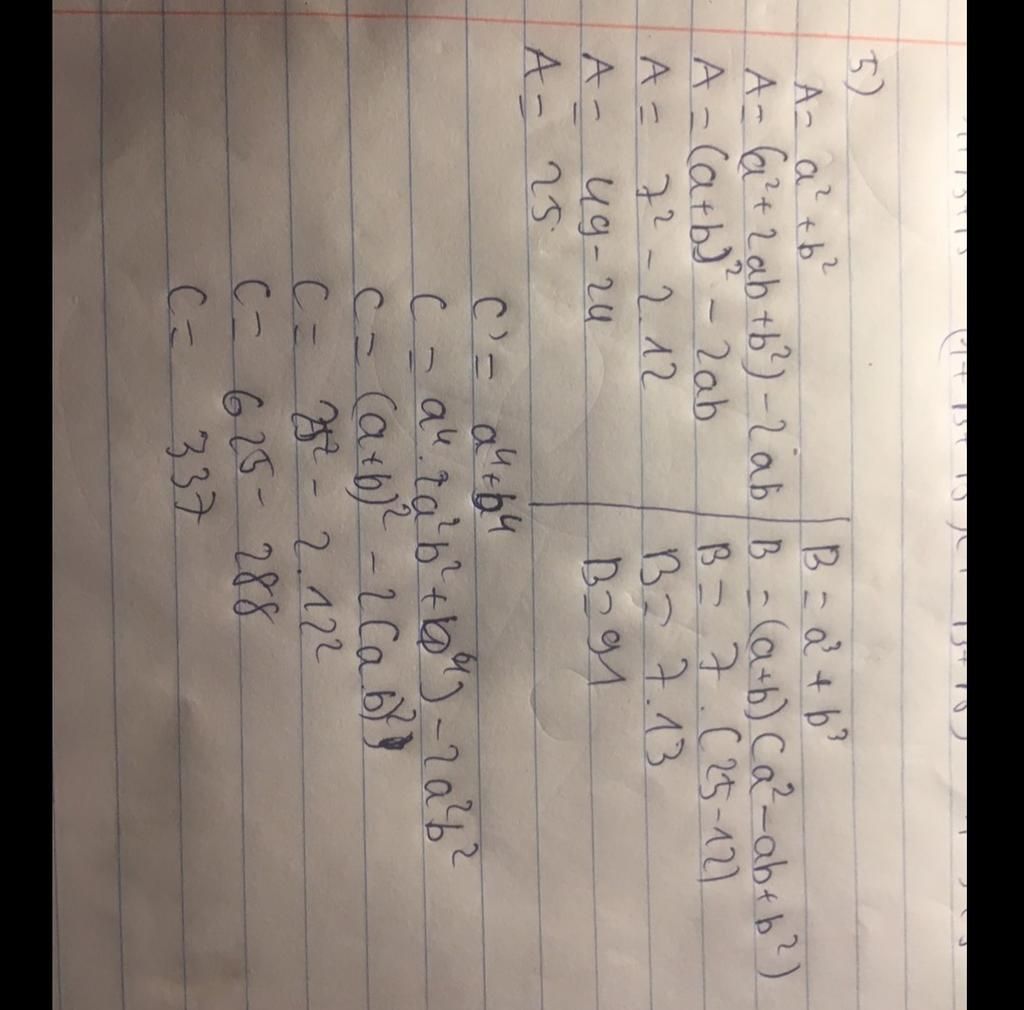 5)
A = a² + b²
A = (a² + 2ab + b²) - 2ab
A = (a+b)² - 2ab
A = 7² - 2.12
A = 49 - 24
A = 25
B = a³ + b³
B = (a+b)(a² - ab + b²)
B = 7.(25-12)
B = 7.13
B = 91
C = a⁴ + b⁴
C = a⁴.2a²b² + b⁴) - 2a²b²
C = (a+b)² - 2(ab)²)
C = 25² - 2.12²
C = 625 - 288
C = 337